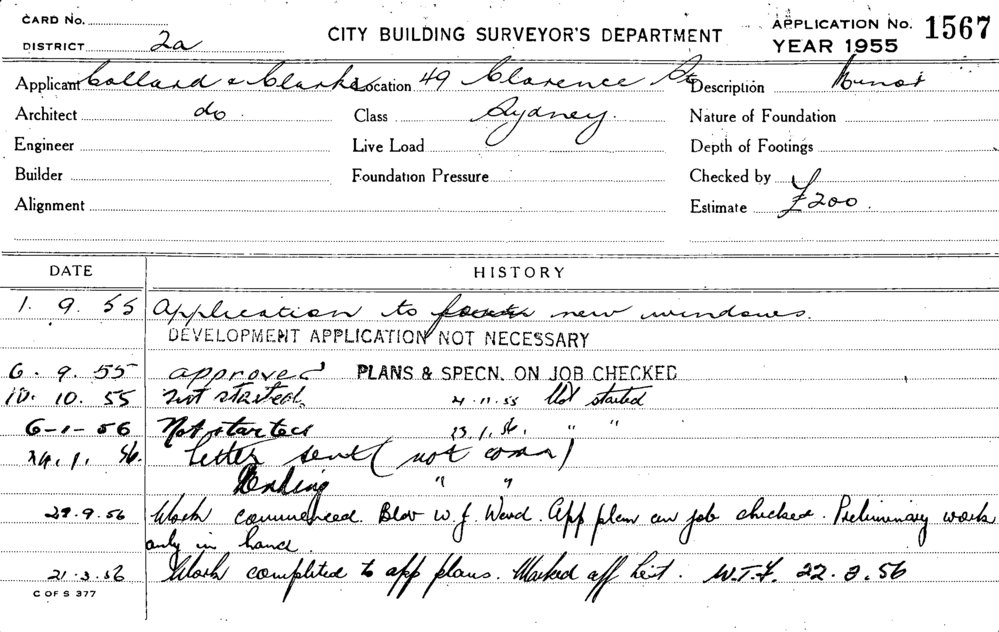 CARD No.
DISTRICT 2a
CITY BUILDING SURVEYOR'S DEPARTMENT
APPLICATION No. 1567
YEAR 1955
Applicant Collard & Clarke Location 49 Clarence St Description Minor
Architect do Class Sydney. Nature of Foundation
Engineer Live Load Depth of Footings
Builder Foundation Pressure Checked by
Alignment Estimate £200.
DATE HISTORY
1. 9. 55 Application to new windows.
DEVELOPMENT APPLICATION NOT NECESSARY
6. 9. 55 approved PLANS & SPECN. ON JOB CHECKED
10. 10. 55 Not started. 4.11.55 Not started
6-1-56 Not started 23.1.56. " "
24.1.56. Letter sent (not comm)
Pending " "
29.9.56 Work commenced. Bldr W. J. Ward. App plan on job checked. Preliminary work
only in hand.
21.3.56 Work completed to app plans. Marked off list. W.T.F. 22.3.56
C OF S 377